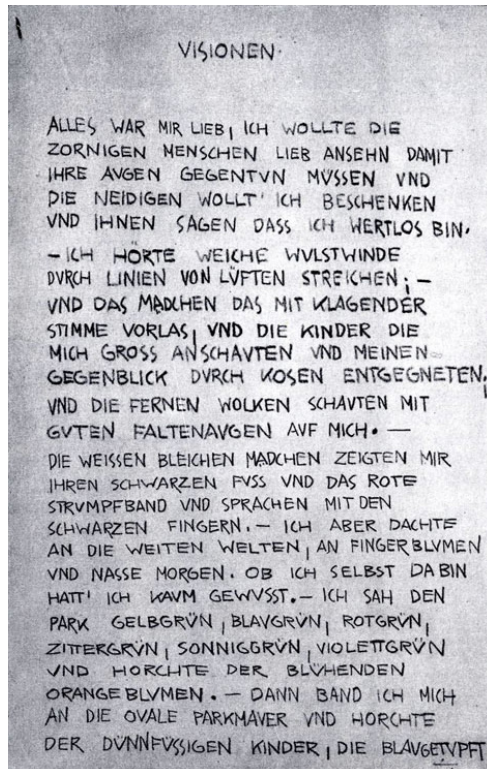 VISIONEN.
ALLES WAR MIR LIEB, ICH WOLLTE DIE
ZORNIGEN MENSCHEN LIEB ANSEHN DAMIT
IHRE AVGEN GEGENTVN MÜSSEN VND
DIE NEIDIGEN WOLLT' ICH BESCHENKEN
VND IHNEN SAGEN DASS ICH WERTLOS BIN.
– ICH HÖRTE WEICHE WVLSTWINDE
DVRCH LINIEN VON LÜFTEN STREICHEN; –
VND DAS MÄDCHEN DAS MIT KLAGENDER
STIMME VORLAS, VND DIE KINDER DIE
MICH GROSS ANSCHAVTEN VND MEINEN
GEGENBLICK DVRCH KOSEN ENTGEGNETEN,
VND DIE FERNEN WOLKEN SCHAVTEN MIT
GVTEN FALTENAVGEN AVF MICH. –
DIE WEISSEN BLEICHEN MÄDCHEN ZEIGTEN MIR
IHREN SCHWARZEN FVSS VND DAS ROTE
STRVMPFBAND VND SPRACHEN MIT DEN
SCHWARZEN FINGERN. – ICH ABER DACHTE
AN DIE WEITEN WELTEN, AN FINGERBLVMEN
VND NASSE MORGEN. OB ICH SELBST DA BIN
HATT' ICH KAVM GEWVSST. – ICH SAH DEN
PARK GELBGRÜN, BLAVGRÜN, ROTGRÜN,
ZITTERGRÜN, SONNIGGRÜN, VIOLETTGRÜN
VND HORCHTE DER BLÜHENDEN
ORANGEBLVMEN. – DANN BAND ICH MICH
AN DIE OVALE PARKMAVER VND HORCHTE
DER DÜNNFÜSSIGEN KINDER, DIE BLAVGETVPFT